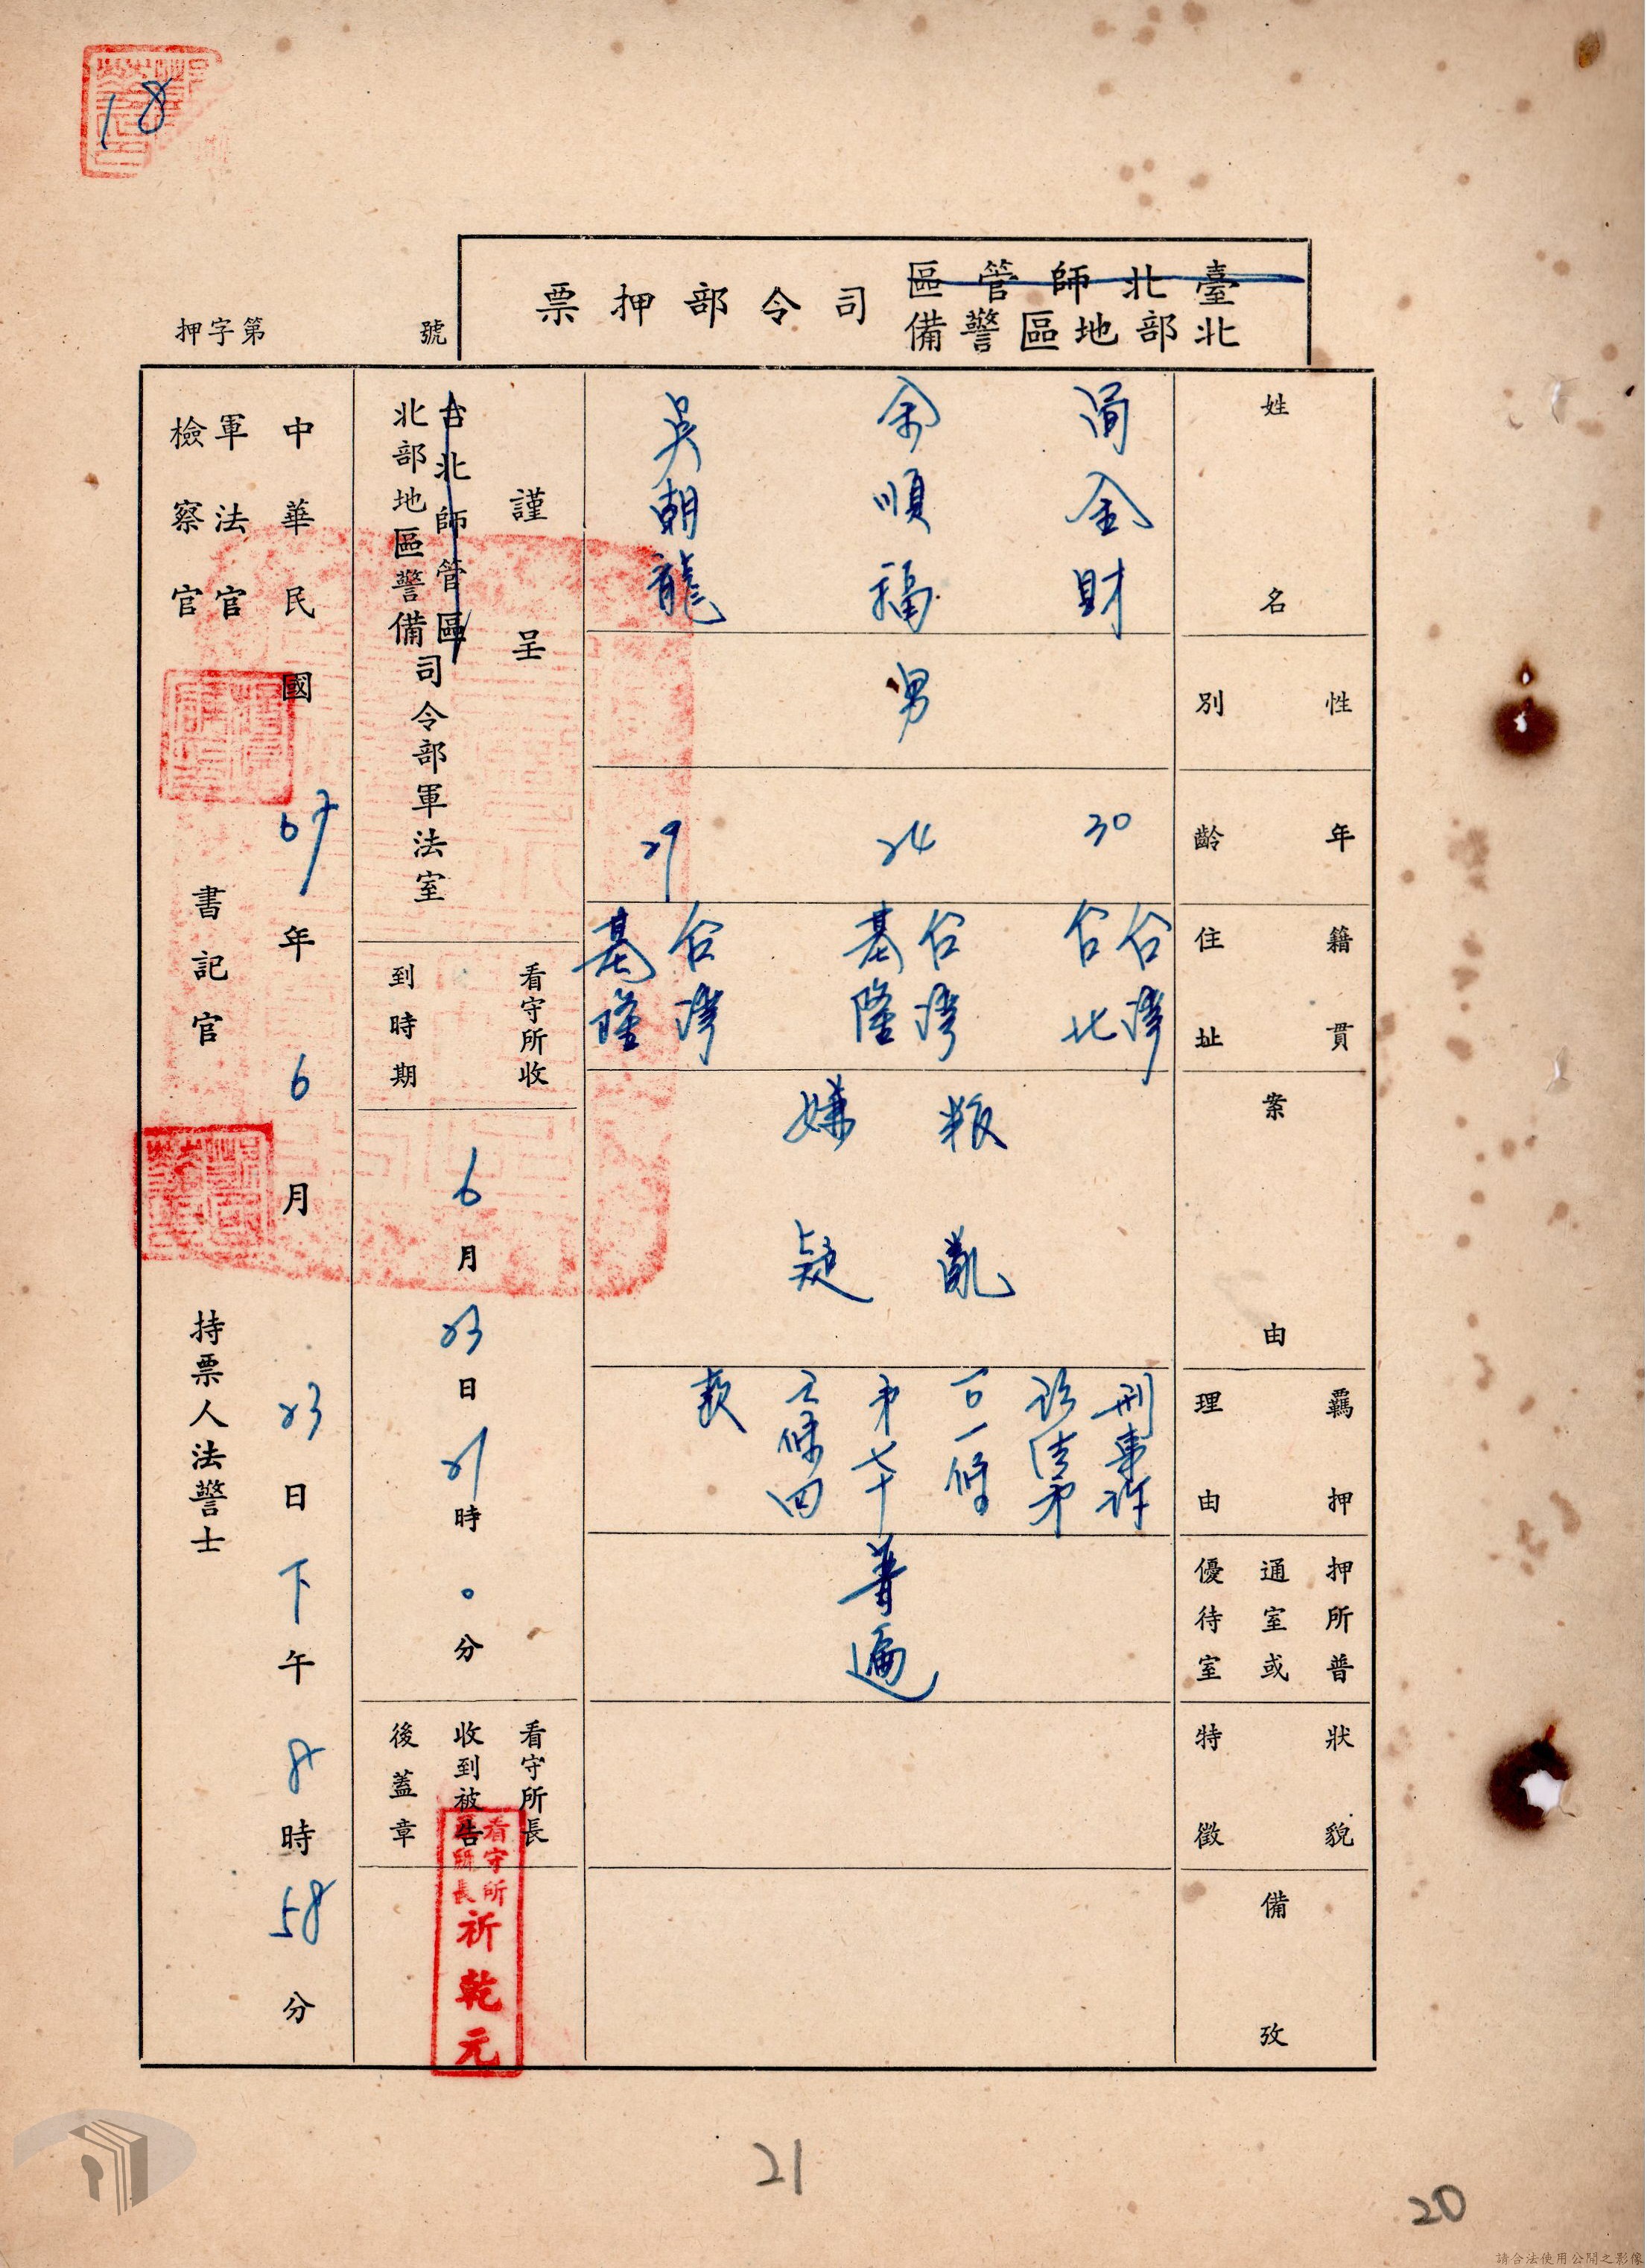 18
臺北師管區
北部地區警備
司令部押票
押字第 號
姓名
簡金財
余順福
吳朝龍
性別
男
年齡
30
24
29
籍貫
住址
台灣
台北
台灣
基隆
台灣
基隆
案由
叛亂
嫌疑
羈押
理由
刑事訴
訟法第
百一條
第七十
六條四
款
押所普
通室或
優待室
普通
狀貌
特徵
備攷
謹呈
台北師管區
北部地區警備
司令部軍法室
看守所收
到時期
6月23日21時0分
看守所長
收到被告
後蓋章
看守所
所長
祈乾元
中華民國67年6月23日下午8時58分
軍法官
檢察官
書記官
持票人法警士
21
20
請合法使用公開之影像